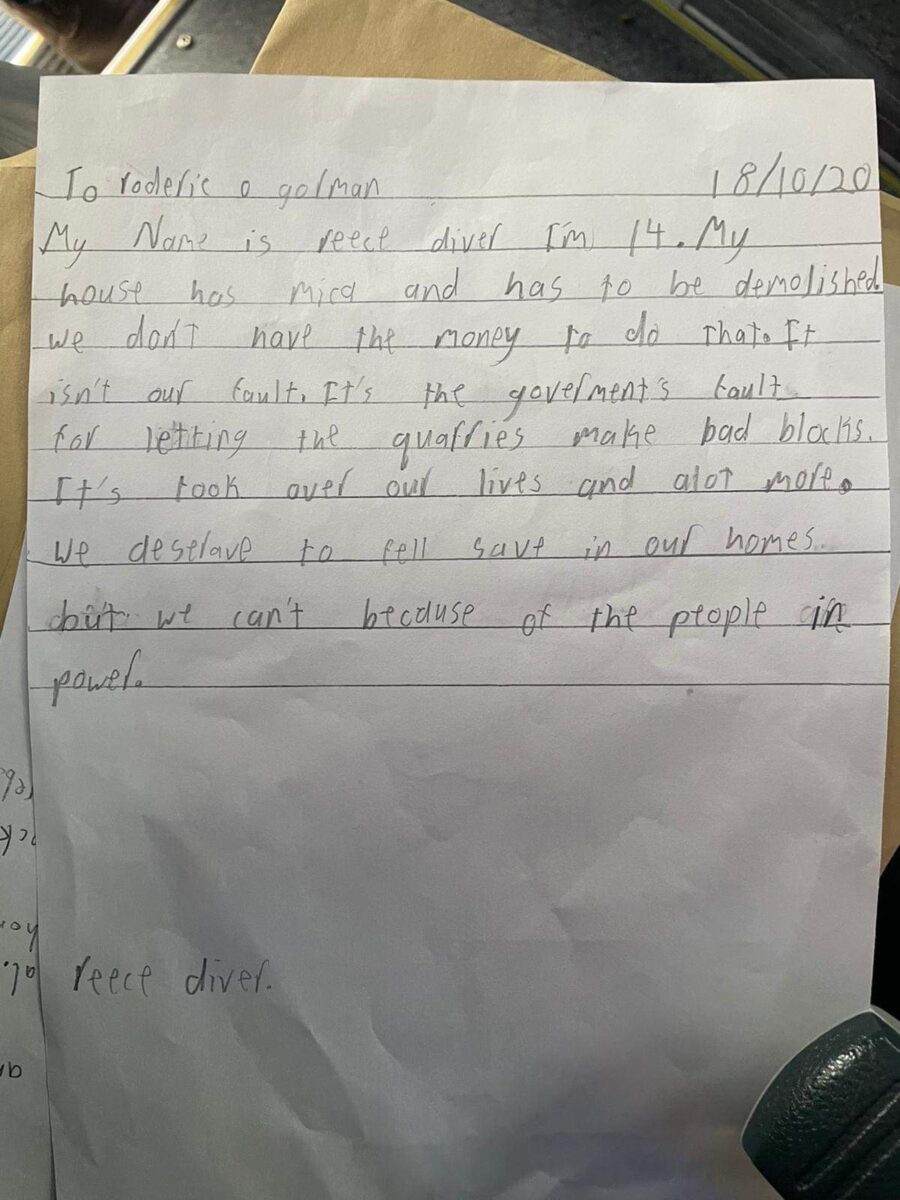 To roderic o gorman 18/10/20
My Name is reece diver I'm 14. My
house has mica and has to be demolished.
we don't have the money to do that. It
isn't our fault. It's the goverment's fault
for letting the quarries make bad blocks.
It's took over our lives and alot more.
we deserave to fell save in our homes.
but we can't because of the people in
power.
reece diver.